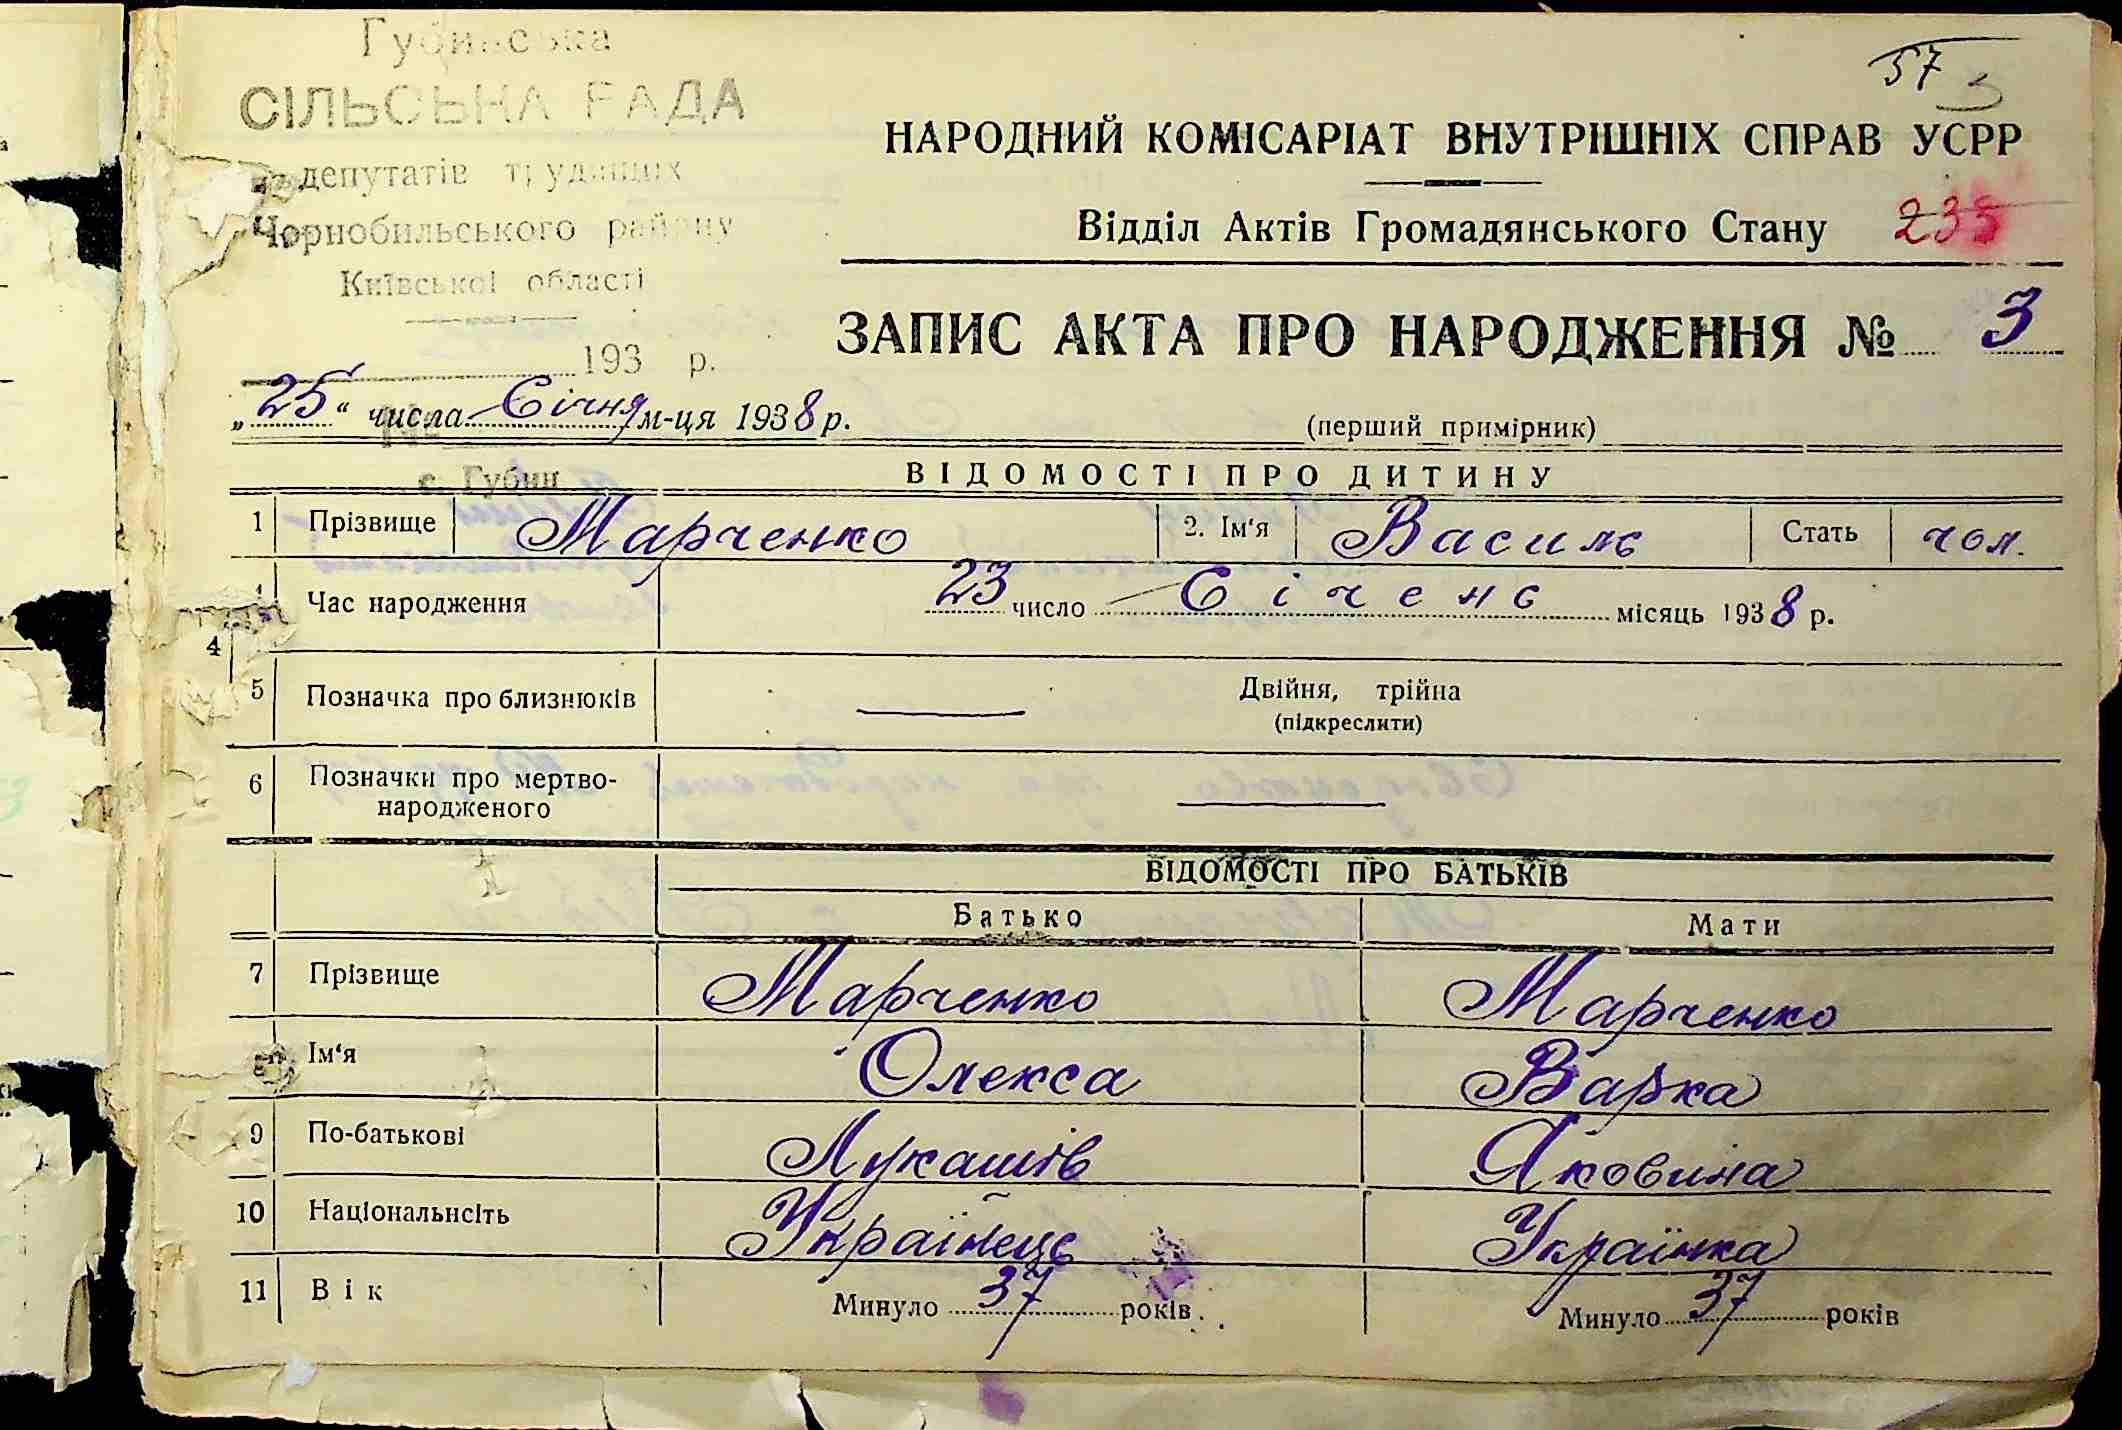 Губинська
СІЛЬСЬКА РАДА
депутатів трудящих
Чорнобильського району
Київської області
193 р.
№
с. Губин
57 3
НАРОДНИЙ КОМІСАРІАТ ВНУТРІШНІХ СПРАВ УСРР
Відділ Актів Громадянського Стану 235
ЗАПИС АКТА ПРО НАРОДЖЕННЯ № 3
„25“ числа Січня м-ця 1938 р.
(перший примірник)
ВІДОМОСТІ ПРО ДИТИНУ
1 Прізвище Марченко 2. Ім'я Василь Стать чол.
4 Час народження 23 число Січень місяць 1938 р.
5 Позначка про близнюків Двійня, трійна
(підкреслити)
6 Позначки про мертво-
народженого
ВІДОМОСТІ ПРО БАТЬКІВ
Батько Мати
7 Прізвище Марченко Марченко
8 Ім'я Олекса Варка
9 По-батькові Лукашів Яковина
10 Національнсіть Українець Українка
11 Вік Минуло 37 років Минуло 37 років